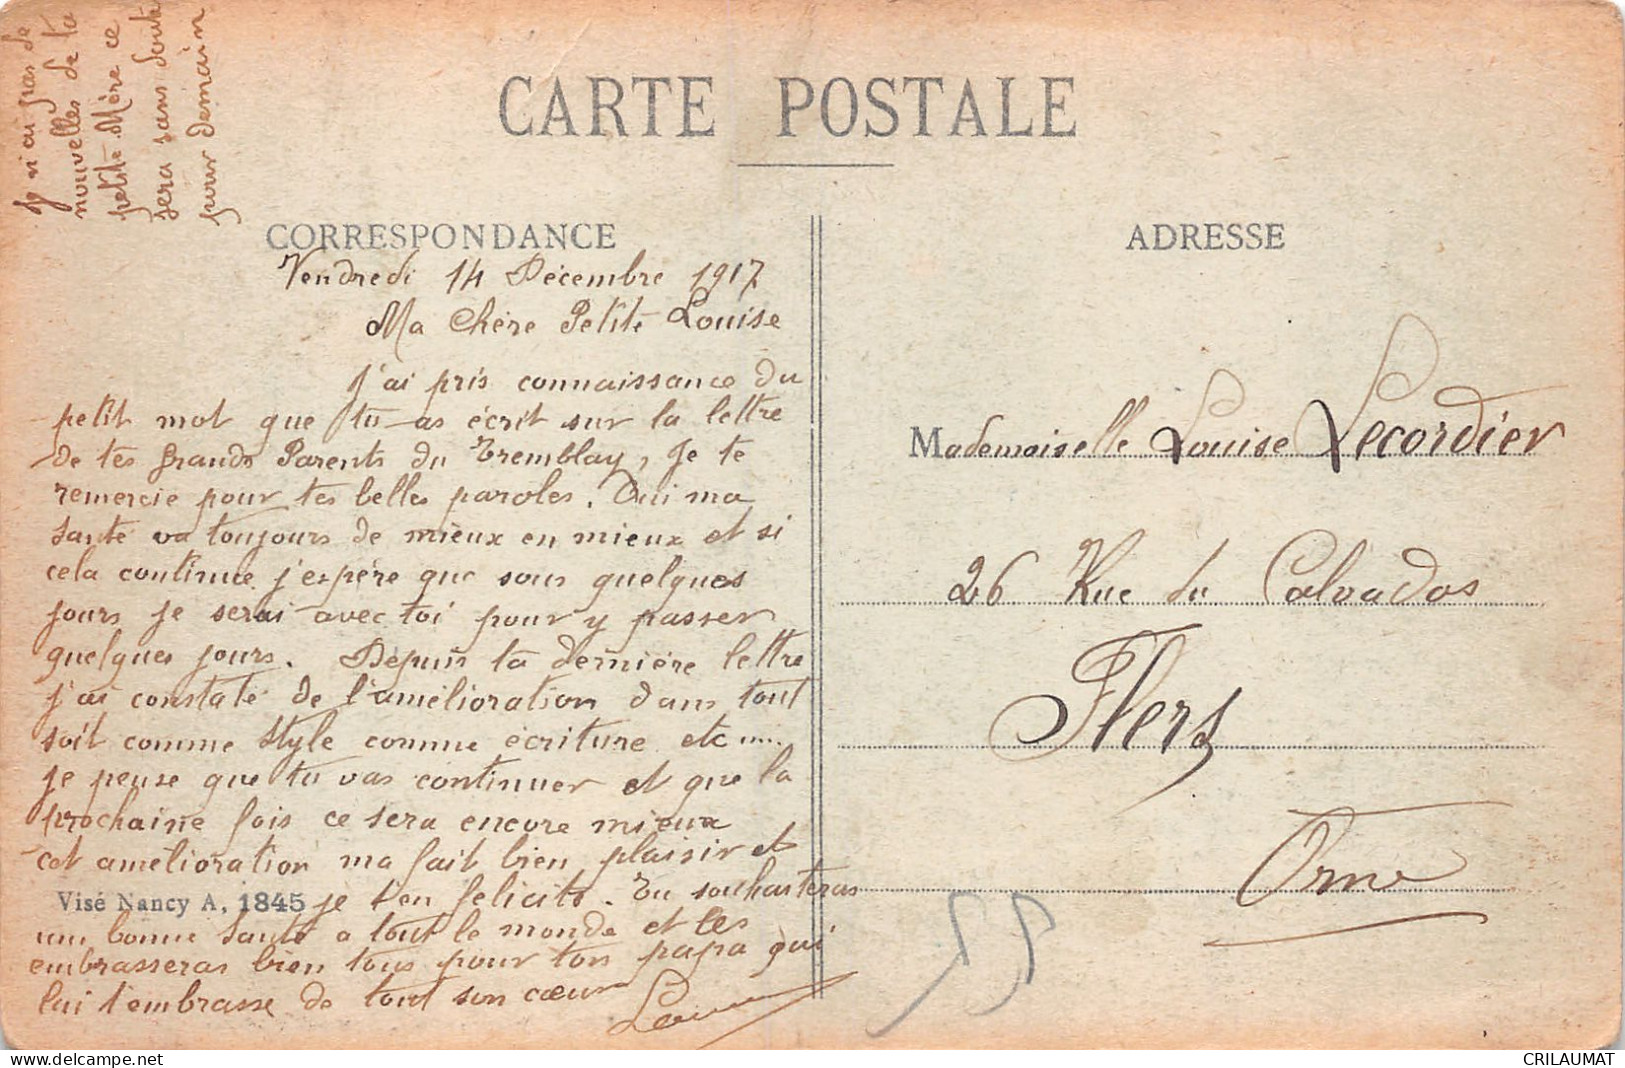 Je n'ai pas de
nouvelles de ta
petite Mère ce
sera sans doute
pour demain
CARTE POSTALE
CORRESPONDANCE
Vendredi 14 Décembre 1917
Ma Chère Petite Louise
J'ai pris connaissance du
petit mot que tu as écrit sur la lettre
de tes Grands Parents du Tremblay, Je te
remercie pour tes belles paroles. Oui ma
santé va toujours de mieux en mieux et si
cela continue j'espère que sous quelques
jours je serai avec toi pour y passer
quelques jours. Depuis ta dernière lettre
j'ai constaté de l'amélioration dans tout
soit comme style comme écriture etc....
je pense que tu vas continuer et que la
prochaine fois ce sera encore mieux
cet amélioration ma fait bien plaisir et
Visé Nancy A, 1845 je t'en felicite. Tu souhaiteras
une bonne santé a tout le monde et les
embrasseras bien tous pour ton papa qui
lui t'embrasse de tout son cœur
ADRESSE
Mademoiselle Louise Lecordier
26 Rue du Calvados
Flers
Orne
CRILAUMAT